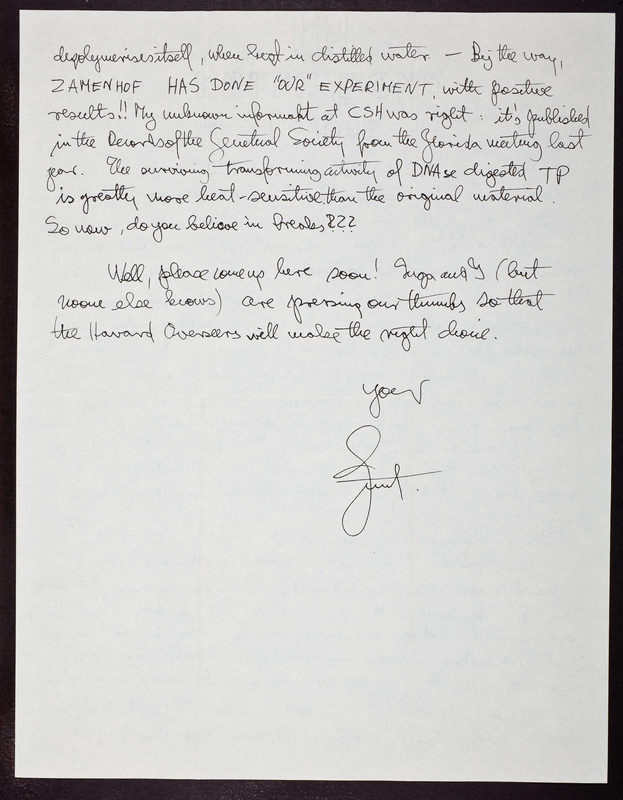 depolymerises itself, when kept in distilled water — By the way,
ZAMENHOF HAS DONE "OUR" EXPERIMENT, with positive
results!! My unknown informant at CSH was right: it's published
in the Records of the Genetical Society from the Florida meeting last
year. The surviving transforming activity of DNAse digested TP
is greatly more heat-sensitive than the original material.
So now, do you believe in breaks???
Well, please come up here soon! Inga and I (but
noone else knows) are pressing our thumbs so that
the Havard Overseers will make the right choice.
Your
Gunt.